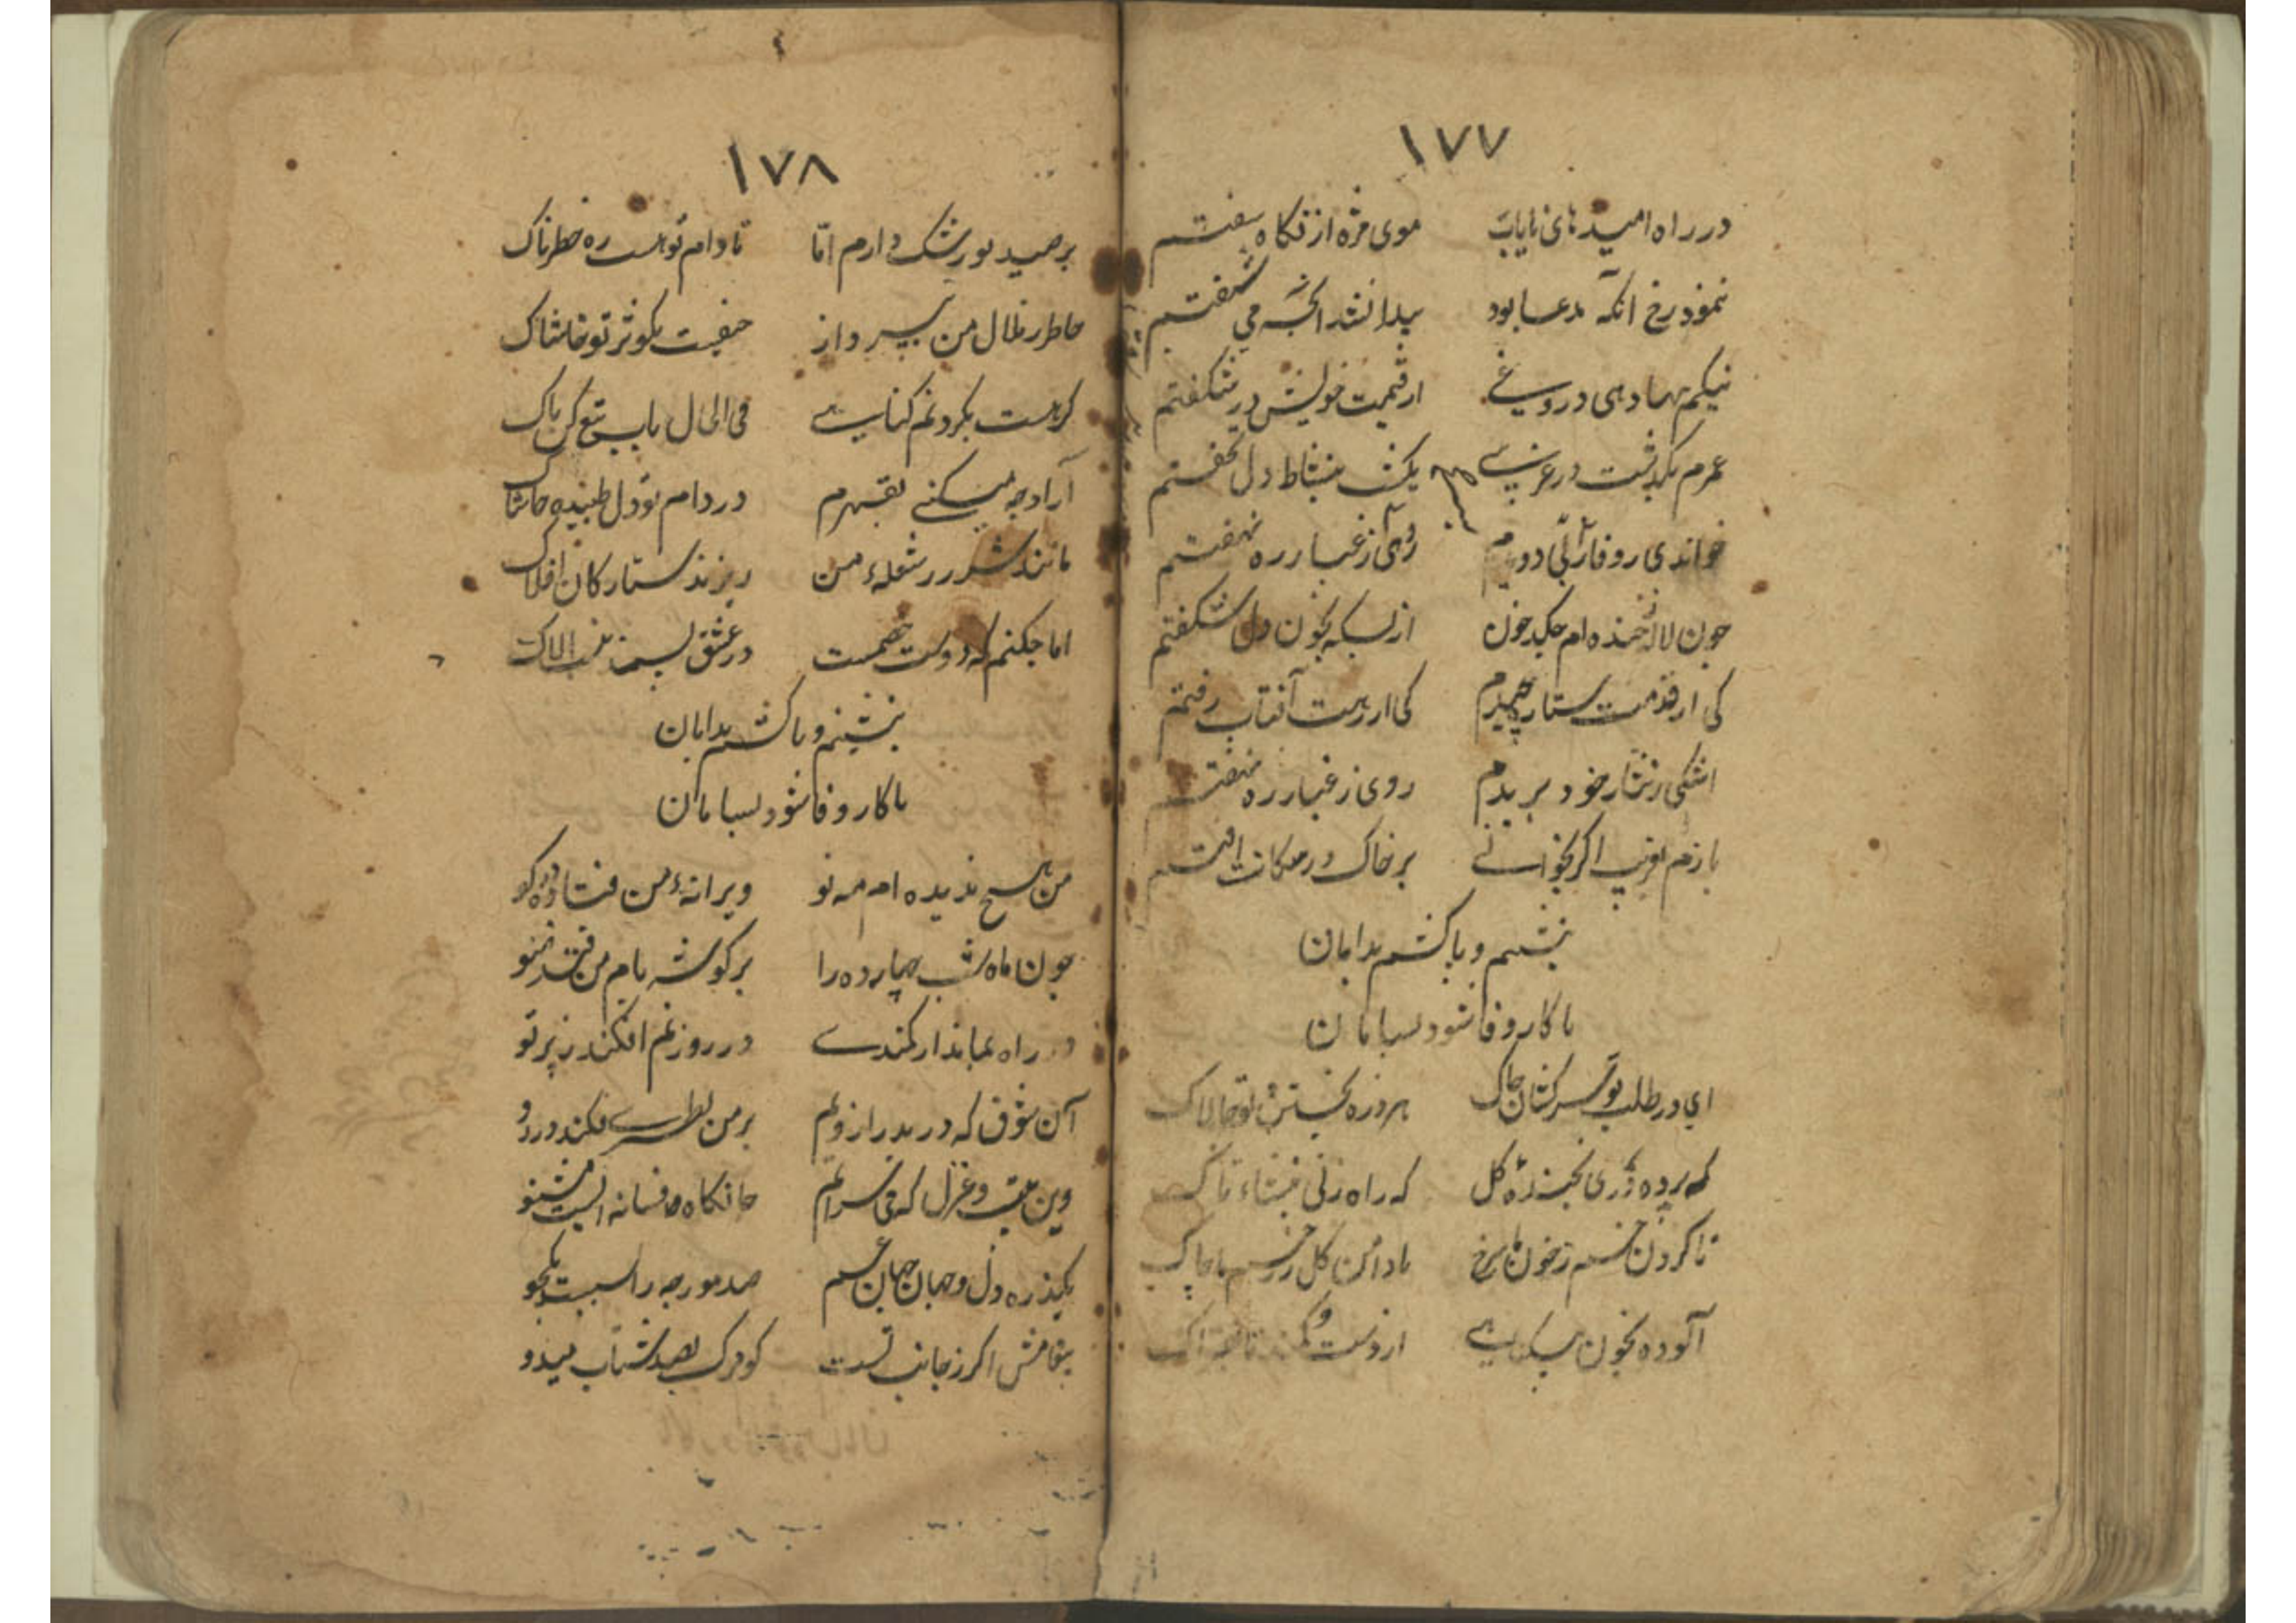 ۱۷۷
در راه امید های نایاب موی مژه از نگاه سفتم
ننمود رخ آنکه مدعا بود پیدا نشد آنچه می شنفتم
نیکم بها دهی دروغی از قیمت خویش در شگفتم
عمرم بگذشت در غریبی یکشب بنشاط دل نخفتم
خواندی روفا دویدم روی ز غبار ره نهفتم
چون لاله خنده ام چکد خون از بسکه بخون دل شکفتم
کی از قدمت ستاره چیدم کی از رهت آفتاب رفتم
اشکی ز نثار خود بریدم روی ز غبار ره نهفتم
بازم بفریب اگر بخوانی بر خاک در افتم
بنشینم و پا کشم بدامان
تا کار وفا شود بسامان
ای در طلب تو سرکشان خاک هر ذره بجستن تو چالاک
که پرده دری بخنده گل که راه زنی تاک
تا گردن خشم ز خون ما سرخ تا دامن گل ز زخم ما چاک
آلوده بخون بیگناهی از دست
۱۷۸
بر صید تو رشک دارم اما تا دام تو هست ره خطرناک
خاطر ز ملال من بپرداز حیفست بکوثر تو خاشاک
گر هست بگردنم گناهی فی الحال بآب تیغ کن پاک
آزاد چه میکنی بقهرم در دام تو دل طپیده حاشاک
مانند شرر ز شعلهٔ من ریزند ستارگان افلاک
اما چکنم که دوست خصمست در عشق
بنشینم و پا کشم بدامان
تا کار وفا شود بسامان
من هیچ ندیده ام مه نو ویرانهٔ من فتاده در گو
چون ماه شب چهارده را بر گوشه بام من فتد ضو
در راه نماند ار کمندی در روز غم افکند ز پرتو
آن شوق که در بدر ازویم بر من نظری فکند در رو
وین بیت و غزل که می سرایم جانکاه فسانه ایست مشنو
یکذره دل و جهان جهان غم صد مورچه را بسست یکجو
پیغامش اگر ز جانب تست گو مرگ بصد شتاب میدو